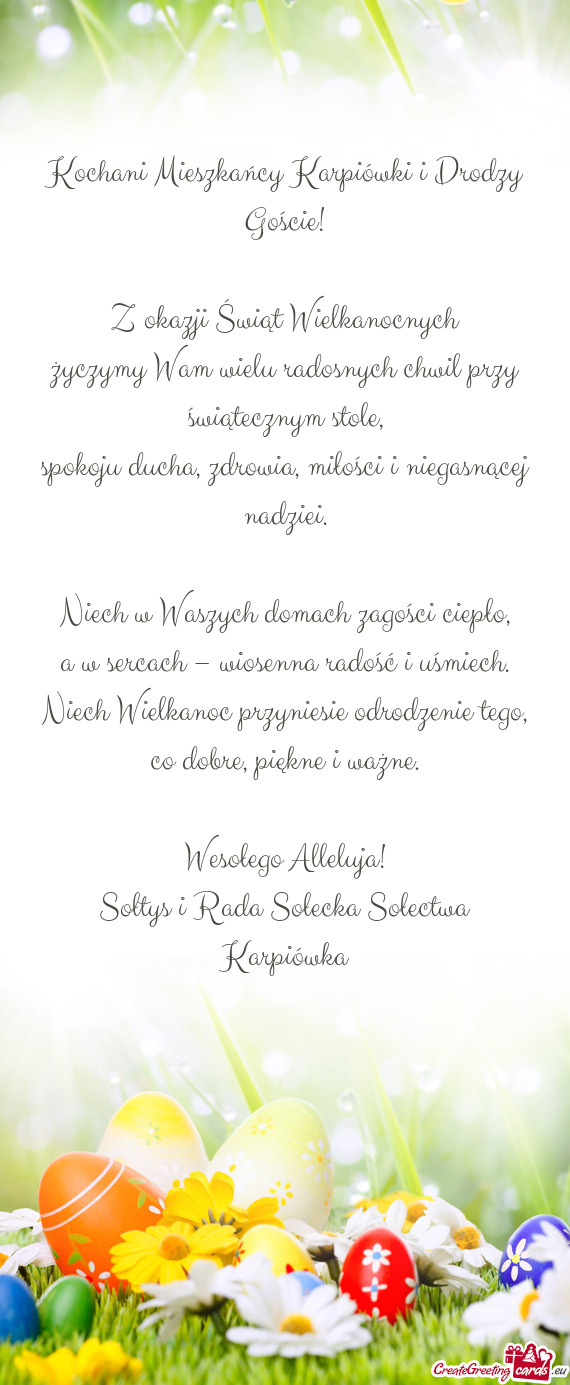 Kochani Mieszkańcy Karpiówki i Drodzy
Goście!
Z okazji Świąt Wielkanocnych
życzymy Wam wielu radosnych chwil przy
świątecznym stole,
spokoju ducha, zdrowia, miłości i niegasnącej
nadziei.
Niech w Waszych domach zagości ciepło,
a w sercach – wiosenna radość i uśmiech.
Niech Wielkanoc przyniesie odrodzenie tego,
co dobre, piękne i ważne.
Wesołego Alleluja!
Sołtys i Rada Sołecka Sołectwa
Karpiówka
CreateGreetingcards.eu